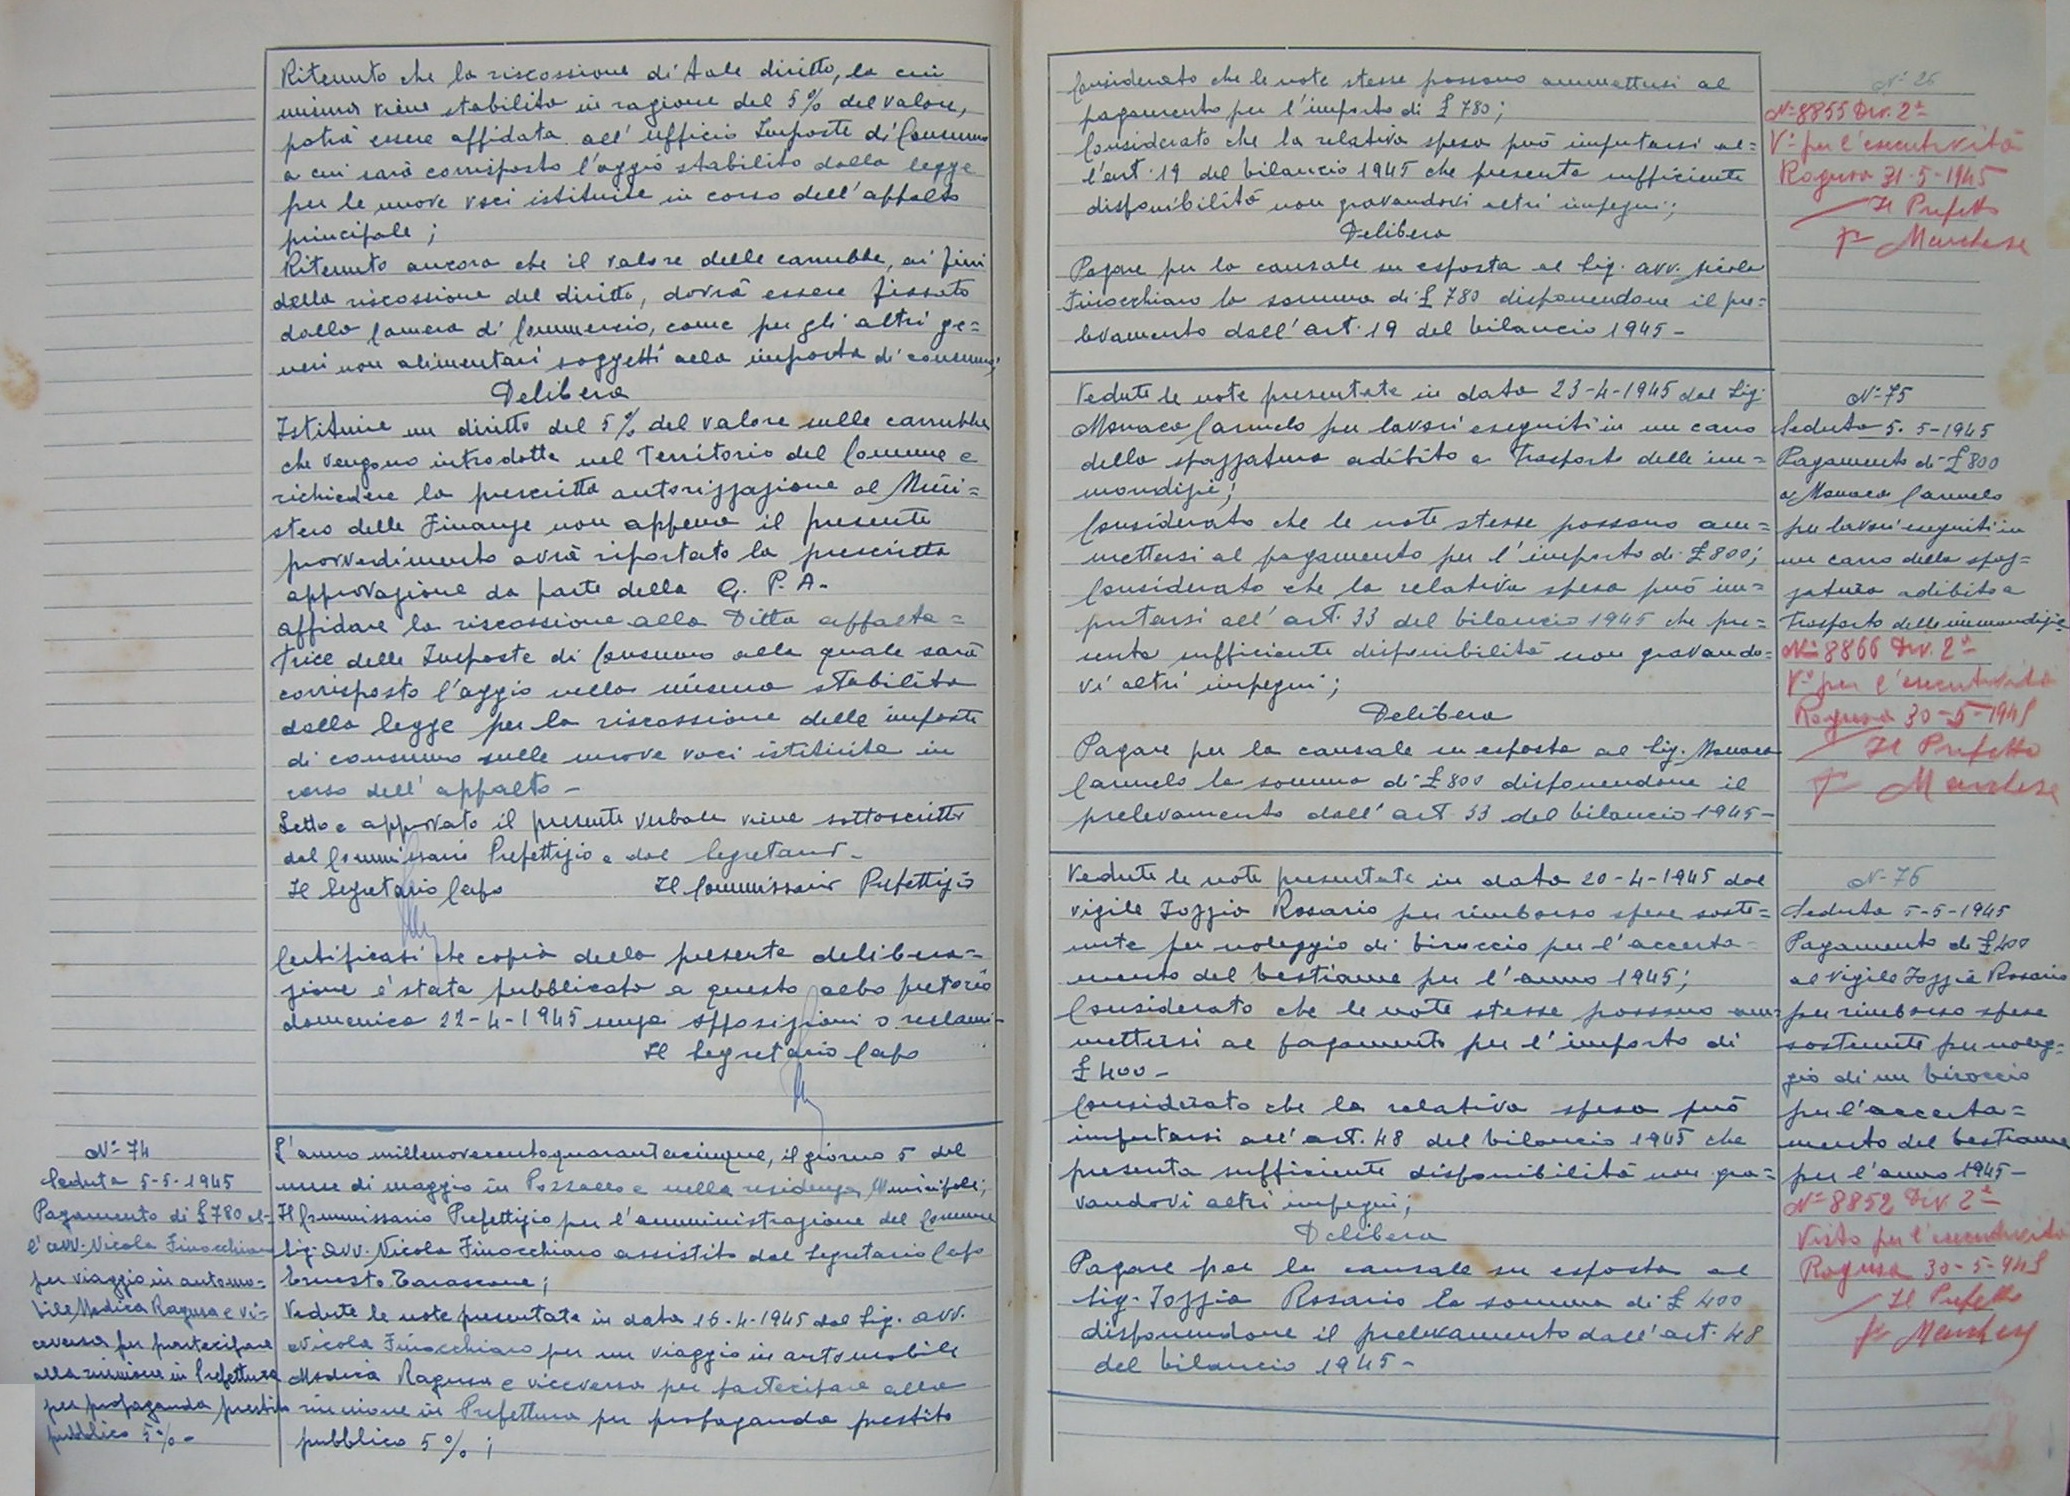 Ritenuto che la riscossione di tale diritto, la cui
misura viene stabilita in ragione del 5% del valore,
potrà essere affidata all'ufficio Imposte di Consumo
a cui sarà corrisposto l'aggio stabilito dalla legge
per le nuove voci istituite in corso dell'appalto
principale;
Ritenuto ancora che il valore delle carrubbe, ai fini
della riscossione del diritto, dovrà essere fissato
dalla Camera di Commercio, come per gli altri ge=
neri non alimentari soggetti alla imposta di consumo;
Delibera
Istituire un diritto del 5% del valore sulle carrubbe
che vengono introdotte nel Territorio del Comune e
richiedere la prescritta autorizzazione al Mini=
stero delle Finanze non appena il presente
provvedimento avrà riportato la prescritta
approvazione da parte della G. P. A.
affidare la riscossione alla Ditta appalta=
trice delle Imposte di Consumo alla quale sarà
corrisposto l'aggio nella misura stabilita
dalla legge per la riscossione delle imposte
di consumo sulle nuove voci istituite in
corso dell'appalto -
Letto e approvato il presente verbale viene sottoscritto
dal Commissario Prefettizio e dal Segretario -
Il Segretario Capo Il Commissario Prefettizio
Certificasi che copia della presente delibera=
zione è stata pubblicata a questo albo pretorio
domenica 22-4-1945 senza opposizioni o reclami -
Il Segretario Capo
N° 74
Seduta 5-5-1945
Pagamento di £ 780 al=
l'avv. Nicola Finocchiaro
per viaggio in automo=
bile Modica Ragusa e vi=
ceversa per partecipare
alla riunione in Prefettura
per propaganda prestito
pubblico 5% -
L'anno millenovecentoquarantacinque, il giorno 5 del
mese di maggio in Pozzallo e nella residenza Municipale;
Il Commissario Prefettizio per l'amministrazione del Comune
Sig. Avv. Nicola Finocchiaro assistito dal Segretario Capo
Ernesto Tarascone;
Vedute le note presentate in data 16-4-1945 dal Sig. avv.
Nicola Finocchiaro per un viaggio in automobile
Modica Ragusa e viceversa per partecipare alla
riunione in Prefettura per propaganda prestito
pubblico 5%;
Considerato che le note stesse possono ammettersi al
pagamento per l'importo di £ 780;
Considerato che la relativa spesa può imputarsi al=
l'art. 19 del bilancio 1945 che presenta sufficiente
disponibilità non gravandovi altri impegni;
Delibera
Pagare per la causale su esposta al Sig. avv. Nicola
Finocchiaro la somma di £ 780 disponendone il pre=
levamento dall'art. 19 del bilancio 1945 -
N° 26
N° 8855 Div. 2ª
V° per l'esecutività
Ragusa 31-5-1945
Il Prefetto
Fto Marchese
Vedute le note presentate in data 23-4-1945 dal Sig.
Monaco Carmelo per lavori eseguiti in un carro
della spazzatura adibito a Trasporto delle im=
mondizie;
Considerato che le note stesse possono am=
mettersi al pagamento per l'importo di £ 800;
Considerato che la relativa spesa può im=
putarsi all'art. 33 del bilancio 1945 che pre=
senta sufficiente disponibilità non gravando=
vi altri impegni;
Delibera
Pagare per la causale su esposta al Sig. Monaco
Carmelo la somma di £ 800 disponendone il
prelevamento dall'art 33 del bilancio 1945 -
N° 75
Seduta 5-5-1945
Pagamento di £ 800
a Monaco Carmelo
per lavori eseguiti in
un carro della spaz=
zatura adibito a
trasporto delle immondizie
N° 8866 Div. 2ª
V° per l'esecutività
Ragusa 30-5-1945
Il Prefetto
Fto Marchese
Vedute le note presentate in data 20-4-1945 dal
vigile Iozzia Rosario per rimborso spese soste=
nute per noleggio di biroccio per l'accerta=
mento del bestiame per l'anno 1945;
Considerato che le note stesse possono am=
mettersi al pagamento per l'importo di
£ 400 -
Considerato che la relativa spesa può
imputarsi all'art. 48 del bilancio 1945 che
presenta sufficiente disponibilità non gra=
vandovi altri impegni;
Delibera
Pagare per la causale su esposta al
Sig. Iozzia Rosario la somma di £ 400
disponendone il prelevamento dall'art. 48
del bilancio 1945 -
N° 76
Seduta 5-5-1945
Pagamento di £ 400
al vigile Iozzia Rosario
per rimborso spese
sostenute per noleg=
gio di un biroccio
per l'accerta=
mento del bestiame
per l'anno 1945 -
N° 8852 Div. 2ª
Visto per l'esecutività
Ragusa 30-5-945
Il Prefetto
Fto Marchese